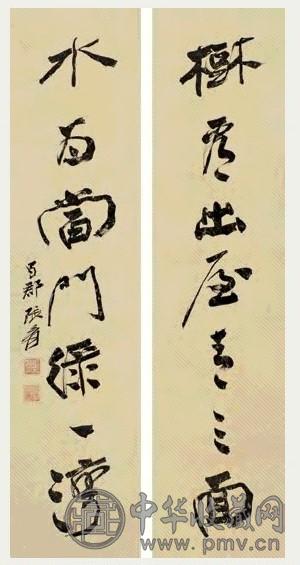 樹看出屋青三面
水為當門綠一灣
蜀郡張爰
中华收藏网
www.pmv.cn